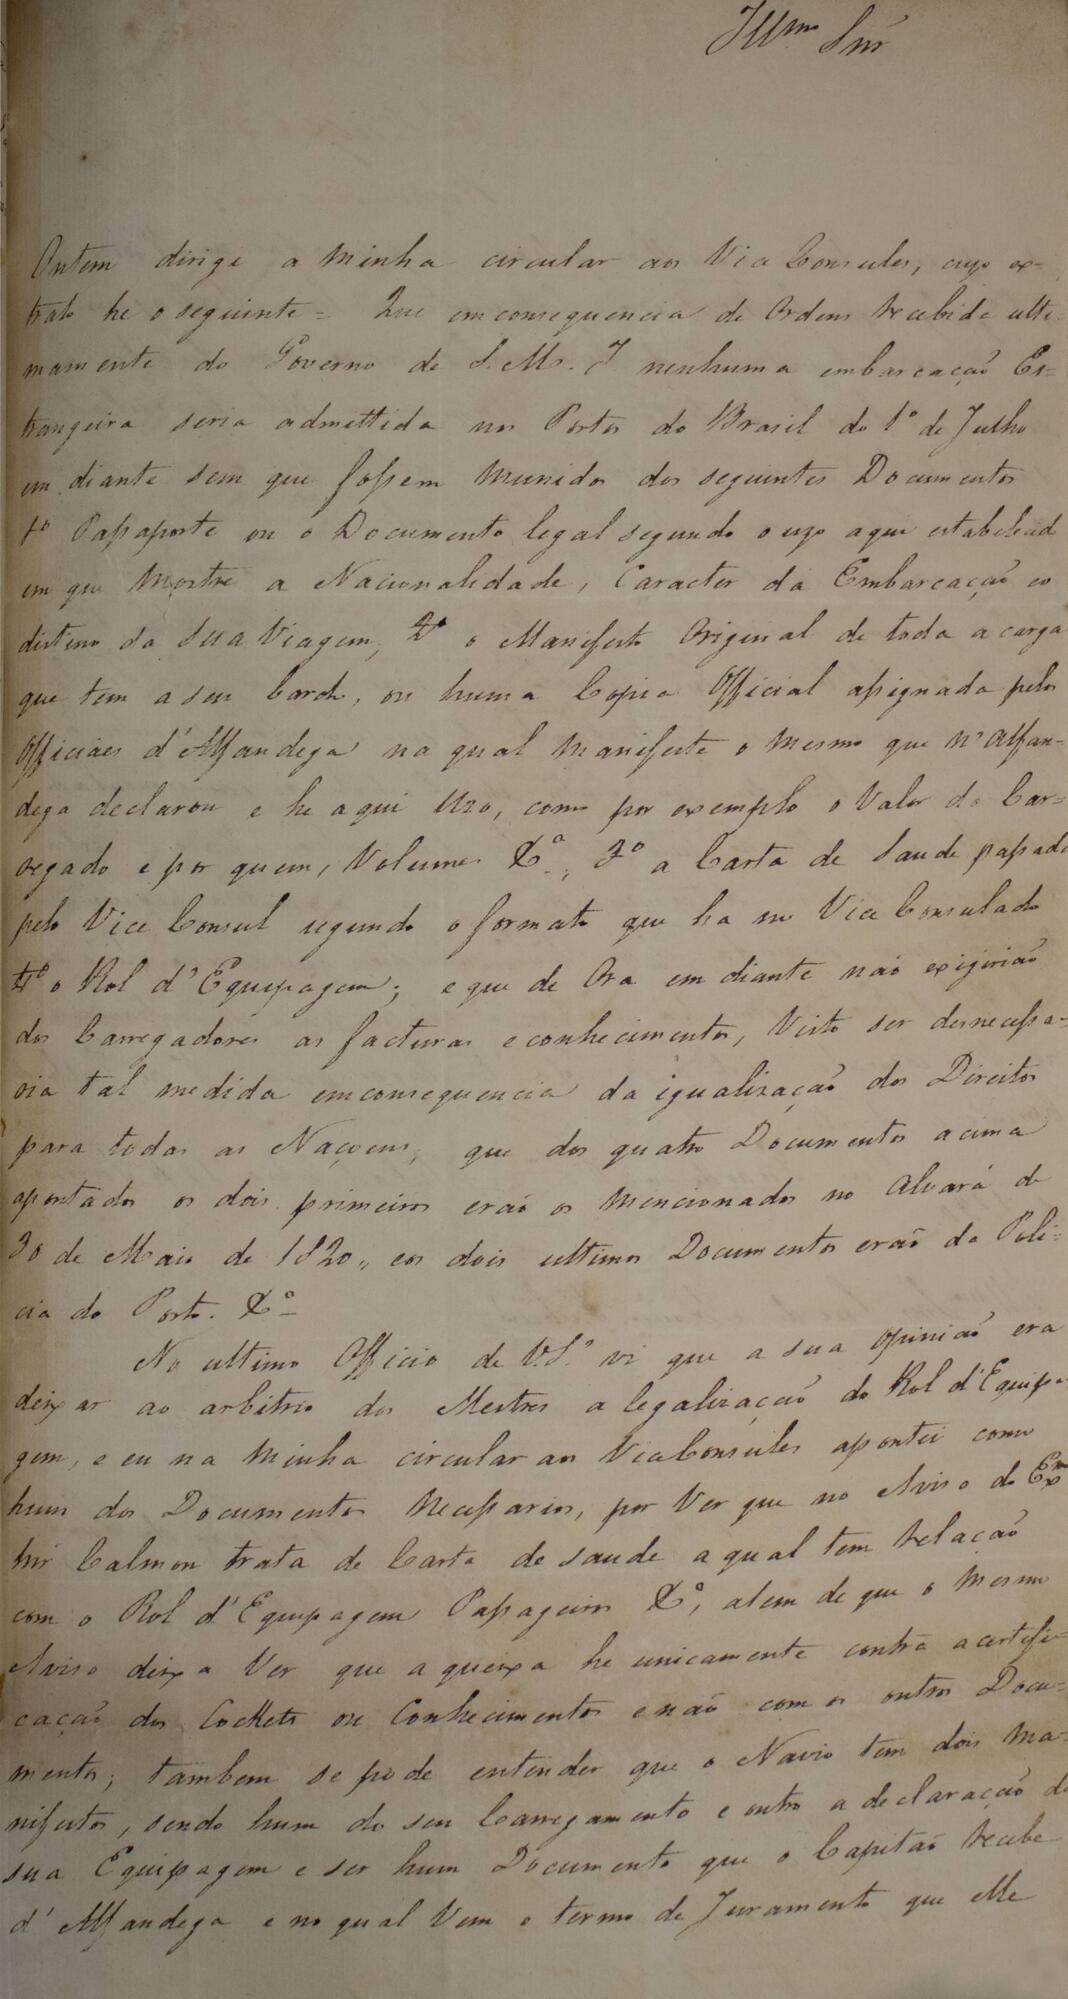 Illmo Snr
Ontem dirige a minha circular aos Vice Consules, cujo ex=
trato he o seguinte = Que em consequencia de Ordens recebida ulti-
mamente do Governo de S. M. I nenhuma embarcação Es=
trangeira seria admettida nos Portos do Brasil do 1º de Julho
em diante sem que fossem munidos dos seguintes Documentos
1º Passaporte ou o Documento legal segundo o uzo aqui estabelecid
em que mostre a Nacionalidade, Caracter da Embarcação eo
distino da sua Viagem, 2º o Manifesto Original de toda a carga
que tem a seu bordo, ou huma Copia Official assignada pelos
Officiaes d'Alfandega na qual manifeste o mesmo que n'Alfan-
dega declarou e he aqui Uzo, como por exemplo o Valor do Car=
regado e por quem, Volumes &ª, 3º a Carta de Saude passada
pelo Vice Consul segundo o formato que ha no Vice Consulado
4º o Rol d'Equipagem; e que de Ora em diante não exigirião
dos Carregadores as facturas e conhecimentos, Visto ser desnecessa-
ria tal medida em consequencia da igualização dos Direitos
para todas as Naçoens, que dos quatro Documentos acima
apontados os dois primeiros erão os mencionados no Alvará de
30 de Maio de 1820, eos dois ultimos Documentos erão da Poli=
cia do Porto. &ª
No ultimo Officio de V.Sª vi que a sua opinião era
deixar ao arbitrio dos Mestres a legalização do Rol d'Equipa
gem, e eu na minha circular aos Vice Consules apontei como
hum dos Documentos Necessarios, por Ver que no Aviso do Exmo
Snr Calmon trata de Carta de saude a qual tem relação
com o Rol d'Equipagem Passageiros &ª, alem de que o mesmo
Aviso deixa Ver que a queixa he unicamente contra a certifi=
cação dos Cockets ou Conhecimentos e não com os outros Docu=
mentos; tambem se pode entender que o Navio tem dois ma=
nifestos, sendo hum do seu Carregamento e outro a declaração de
sua Equipagem e ser hum Documento que o Capitão recebe
d'Alfandega e no qual Vem o termo de Juramento que elle